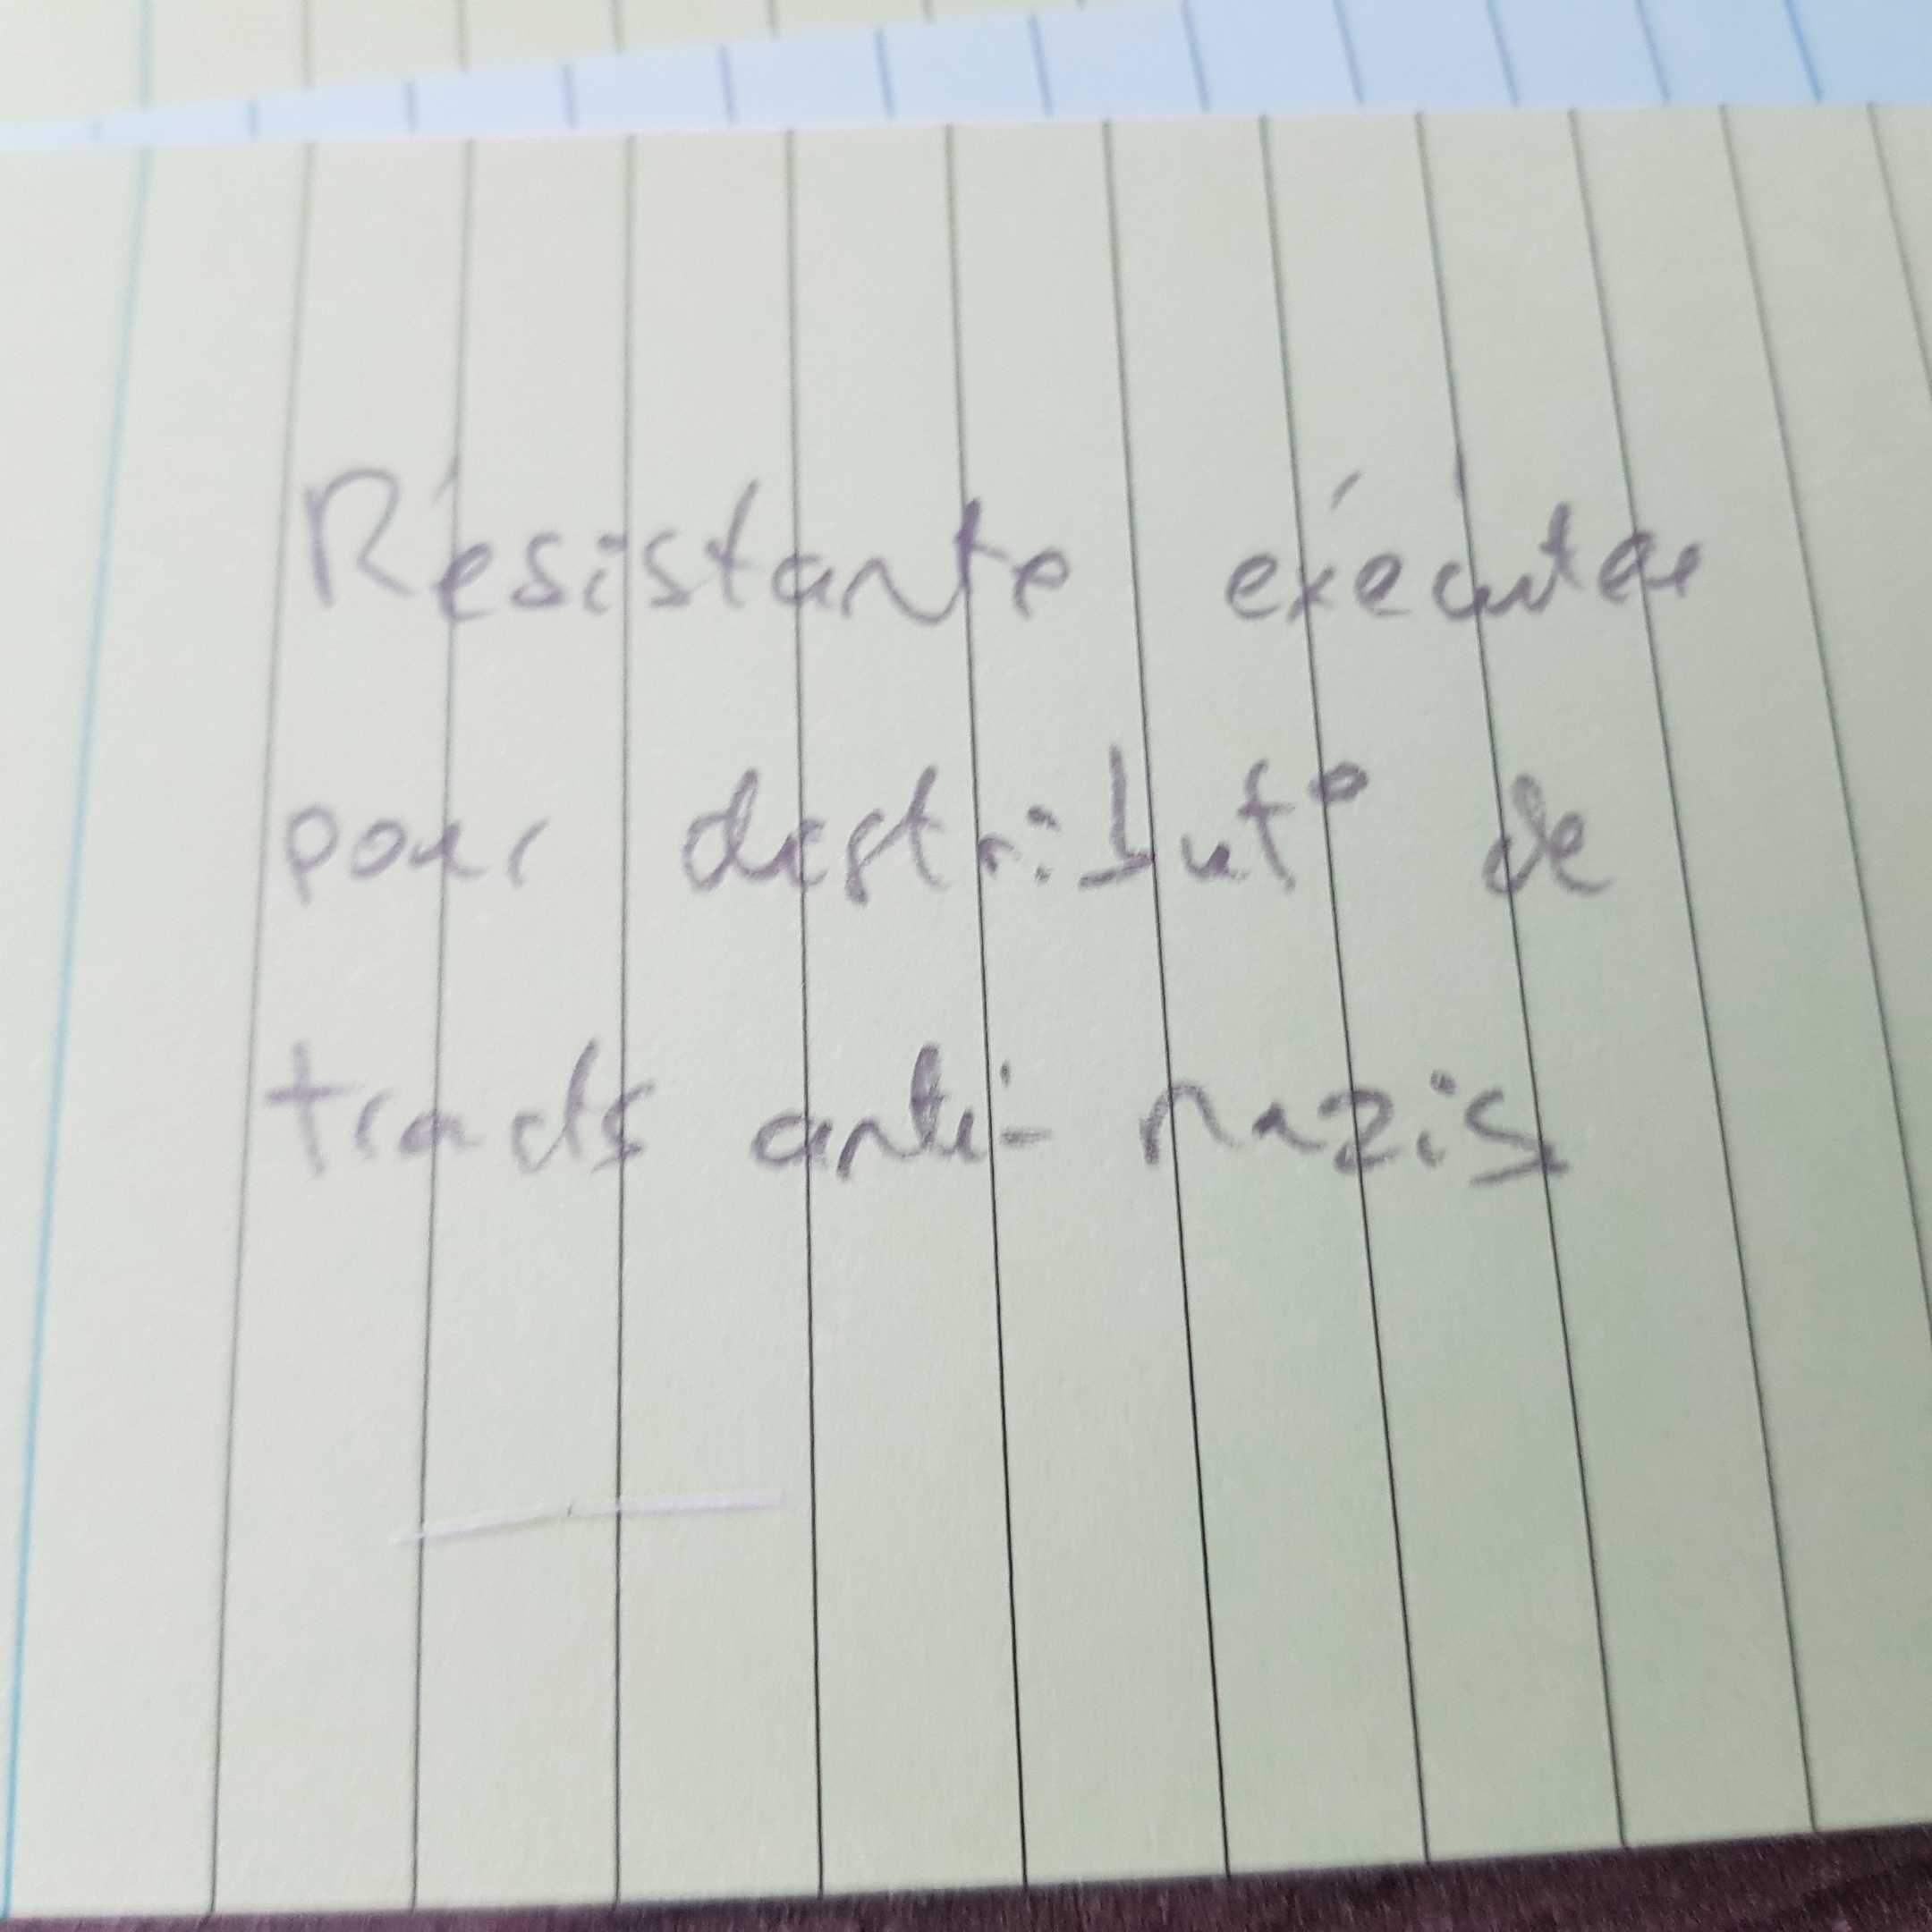 Résistante exécutée
pour distribut° de
tracts anti-nazis